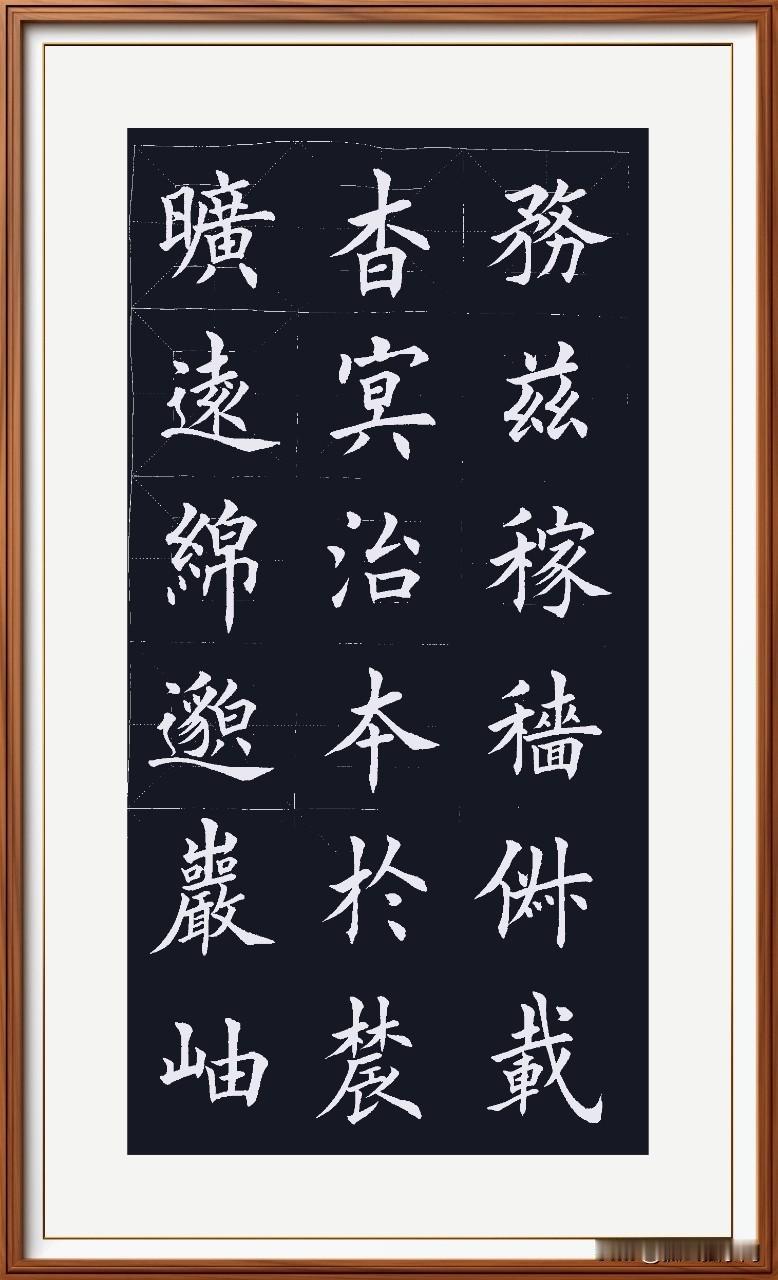 曠遠綿邈巖岫
杳冥治本於辳
務茲稼穡俶載